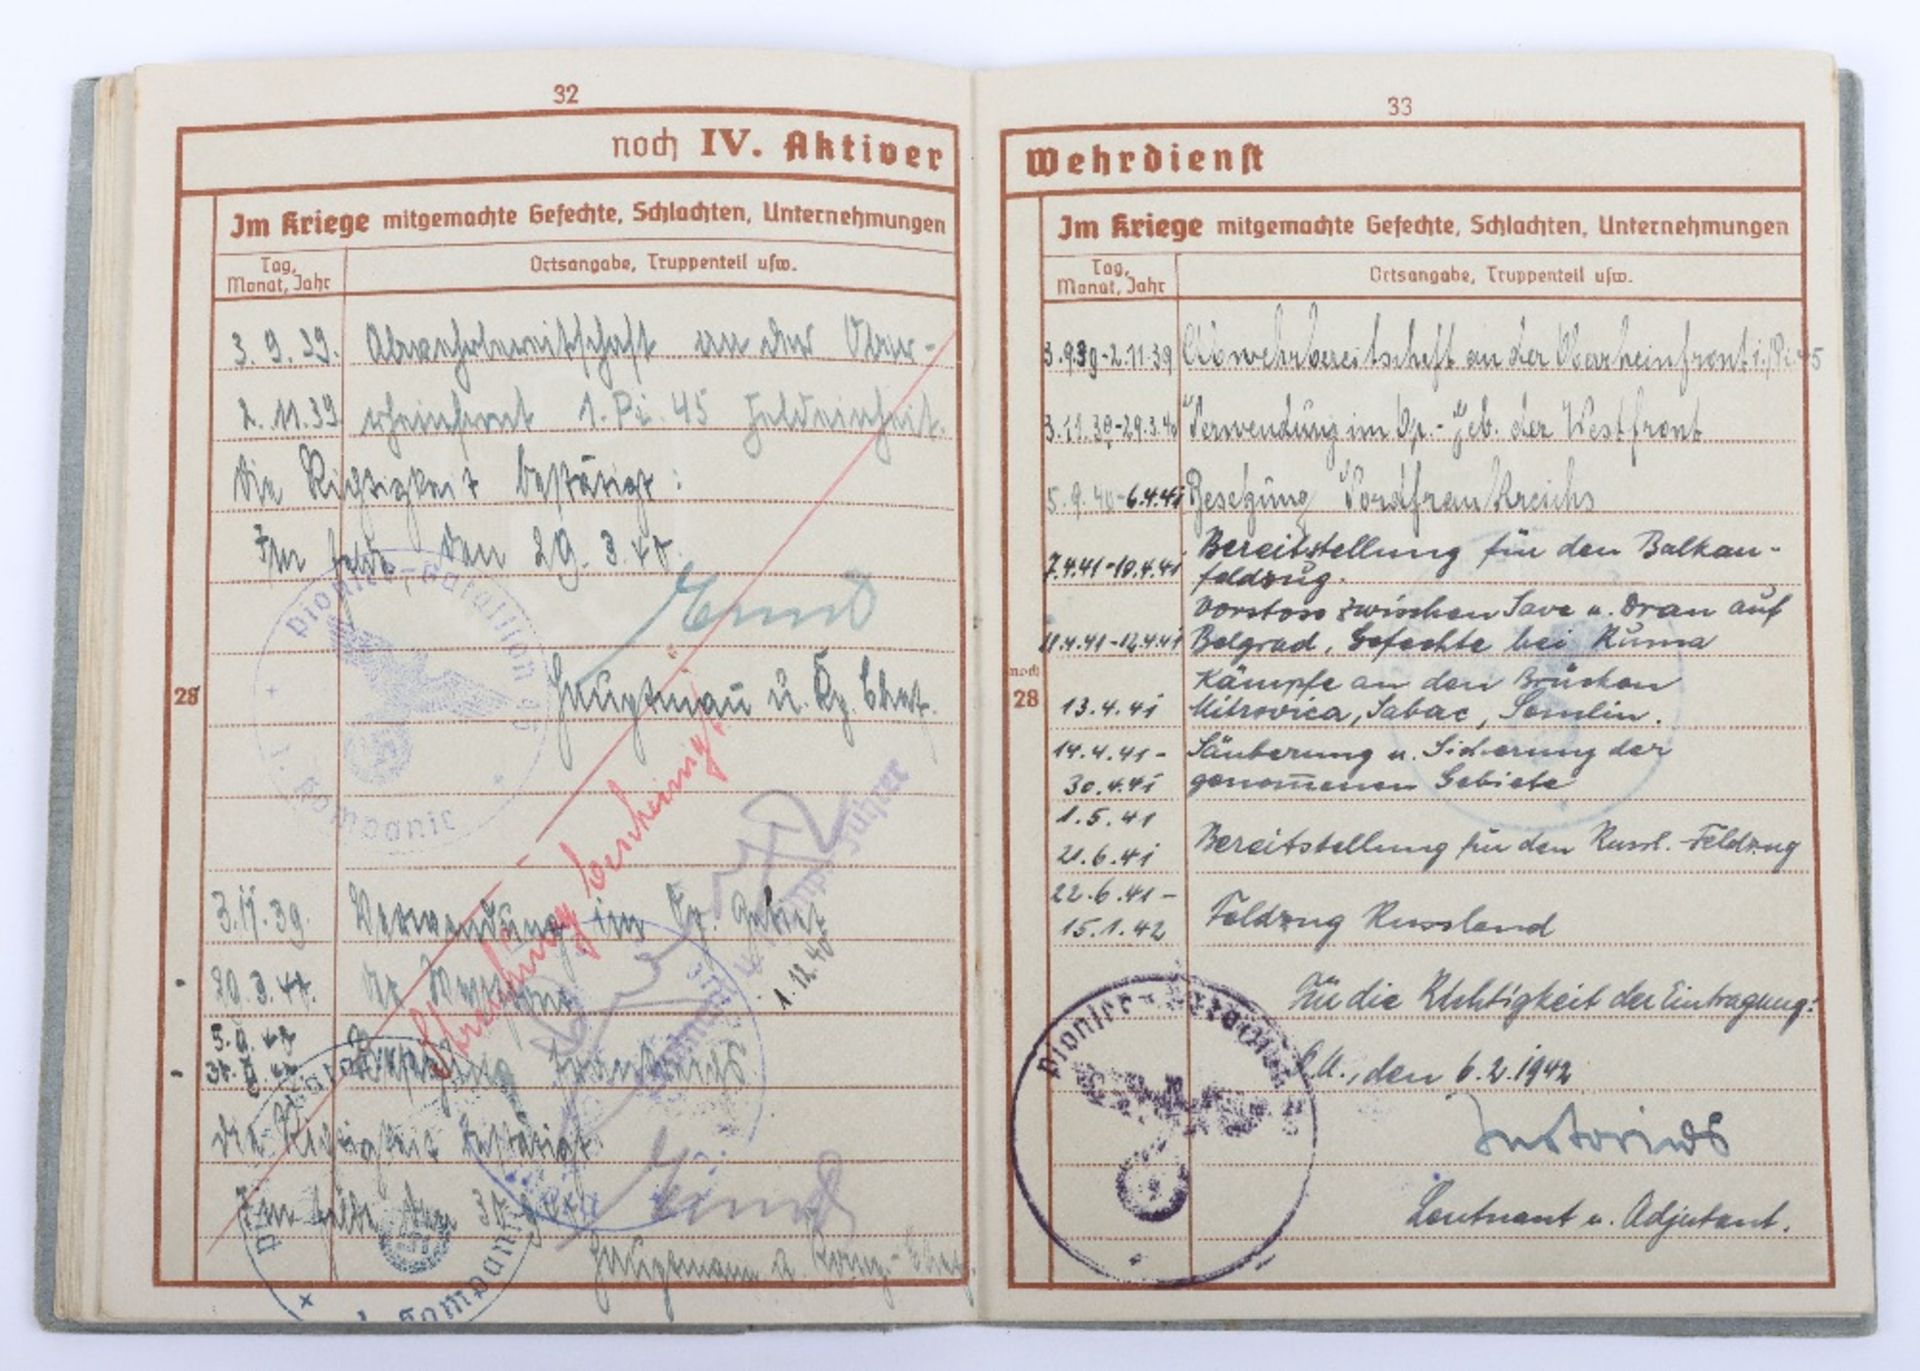 32
noch IV. Aktiver
Im Kriege mitgemachte Gefechte, Schlachten, Unternehmungen
Tag, Monat, Jahr
Ortsangabe, Truppenteil usw.
3.9.39. Abwehrbereitschaft an der Ober-
2.11.39 rheinfront 1. Pi. 45 Feldeinheit.
Die Richtigkeit bestätigt:
Im Felde, den 29.3.40.
Pionier-Bataillon 45
1. Kompanie
Hauptmann u. Kp. Chef.
28
Streichung bescheinigt
3.11.39. Verwendung im Op. Gebiet
29.3.40. der Westfront
1.12.40
Besetzung Frankreichs
Die Richtigkeit bestätigt:
Im Felde den
Hauptmann u. Komp.-Chef.
33
Wehrdienst
Im Kriege mitgemachte Gefechte, Schlachten, Unternehmungen
Tag, Monat, Jahr
Ortsangabe, Truppenteil usw.
3.9.39-2.11.39 Abwehrbereitschaft an der Oberheinfront 1./Pi.45
3.11.39-29.3.40 Verwendung im Op.-Geb. der Westfront
5.9.40-6.4.41 Besetzung Nordfrankreichs
7.4.41-10.4.41 Bereitstellung für den Balkan-
feldzug.
Vorstoss zwischen Save u. Drau auf
11.4.41-12.4.41 Belgrad, Gefechte bei Ruma
noch
28
Kämpfe an den Brücken
13.4.41 Mitrovica, Sabac, Semlin.
14.4.41- Säuberung u. Sicherung der
30.4.41 genommenen Gebiete
1.5.41
21.6.41 Bereitstellung für den Russl.-Feldzug
22.6.41-
15.1.42 Feldzug Russland
Für die Richtigkeit der Eintragung:
O.U., den 6.2.1942
Leutnant u. Adjutant.